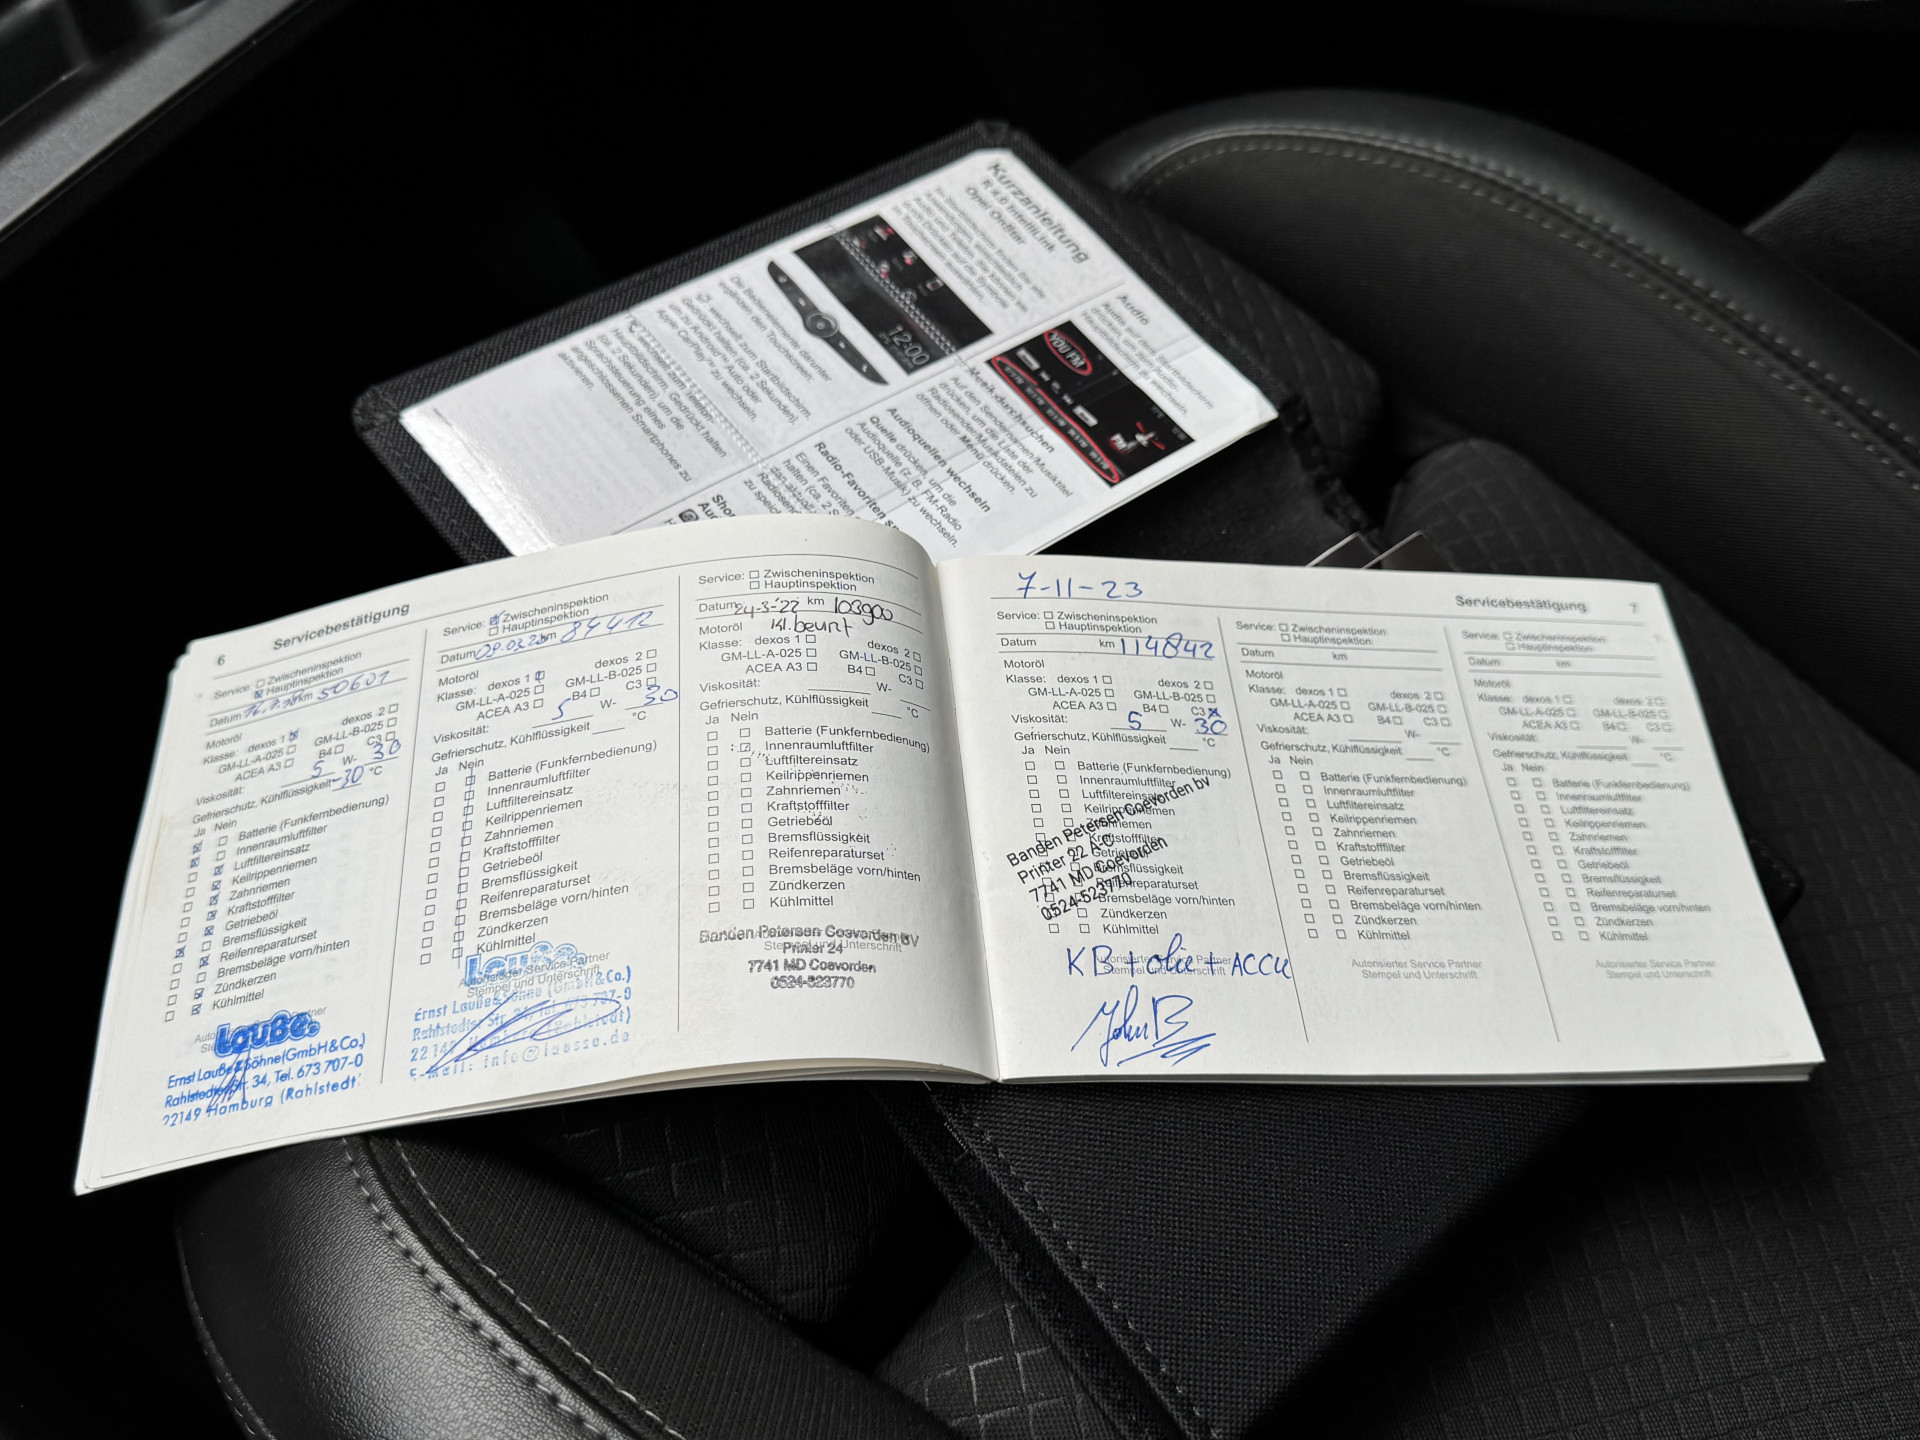 Kurzanleitung
R 4.0 IntelliLink
Opel OnStar
12:00
Die Bedienelemente darunter
ergänzen den Touchscreen.
wechselt zum Startbildschirm.
Gedrückt halten (ca. 2 Sekunden),
um zu Android™ Auto oder
Apple CarPlay™ zu wechseln.
wechselt zum Telefon-
Hauptbildschirm. Gedrückt halten
(ca. 2 Sekunden), um die
Sprachsteuerung eines
angeschlossenen Smartphones zu
aktivieren.
Audio
YOU FM
Musik durchsuchen
Auf den Sendernamen/Musiktitel
drücken, um die Liste der
Radiosender/Musikdateien zu
öffnen oder Menü drücken.
Audioquellen wechseln
Quelle drücken, um die
Audioquelle (z. B. FM-Radio
oder USB-Musik) zu wechseln.
Radio-Favoriten
Einen Favoriten
halten (ca. 2 S
6
Servicebestätigung
Service: Zwischeninspektion
Hauptinspektion
Datum km 50601
Motoröl
Klasse: dexos 1 dexos 2
GM-LL-A-025 GM-LL-B-025
ACEA A3 B4 C3
Viskosität: 5 W- 30
Gefrierschutz, Kühlflüssigkeit -30 °C
Ja Nein
Batterie (Funkfernbedienung)
Innenraumluftfilter
Luftfiltereinsatz
Keilrippenriemen
Zahnriemen
Kraftstofffilter
Getriebeöl
Bremsflüssigkeit
Reifenreparaturset
Bremsbeläge vorn/hinten
Zündkerzen
Kühlmittel
Lauße
Ernst Lauße & Söhne (GmbH & Co.)
Rahlstedter Str. 34, Tel. 673 707-0
22149 Hamburg (Rahlstedt)
Service: Zwischeninspektion
Hauptinspektion
Datum km 84412
Motoröl
Klasse: dexos 1 dexos 2
GM-LL-A-025 GM-LL-B-025
ACEA A3 B4 C3
Viskosität: 5 W- 30
Gefrierschutz, Kühlflüssigkeit °C
Ja Nein
Batterie (Funkfernbedienung)
Innenraumluftfilter
Luftfiltereinsatz
Keilrippenriemen
Zahnriemen
Kraftstofffilter
Getriebeöl
Bremsflüssigkeit
Reifenreparaturset
Bremsbeläge vorn/hinten
Zündkerzen
Kühlmittel
Autorisierter Service Partner
Stempel und Unterschrift
Lauße
Ernst Lauße & Söhne (GmbH & Co.)
Rahlstedter Str. 34, Tel. 673 707-0
22149 Hamburg (Rahlstedt)
E-mail: info@lausse.de
Service: Zwischeninspektion
Hauptinspektion
Datum 24-3-'22 km 103900
Motoröl Kl. beurt
Klasse: dexos 1 dexos 2
GM-LL-A-025 GM-LL-B-025
ACEA A3 B4 C3
Viskosität: W-
Gefrierschutz, Kühlflüssigkeit °C
Ja Nein
Batterie (Funkfernbedienung)
Innenraumluftfilter
Luftfiltereinsatz
Keilrippenriemen
Zahnriemen
Kraftstofffilter
Getriebeöl
Bremsflüssigkeit
Reifenreparaturset
Bremsbeläge vorn/hinten
Zündkerzen
Kühlmittel
Stempel und Unterschrift
Banden Petersen Coevorden BV
Printer 24
7741 MD Coevorden
0524-523770
7-11-23
Service: Zwischeninspektion
Hauptinspektion
Datum km 114842
Motoröl
Klasse: dexos 1 dexos 2
GM-LL-A-025 GM-LL-B-025
ACEA A3 B4 C3
Viskosität: 5 W- 30
Gefrierschutz, Kühlflüssigkeit °C
Ja Nein
Batterie (Funkfernbedienung)
Innenraumluftfilter
Luftfiltereinsatz
Keilrippenriemen
Zahnriemen
Kraftstofffilter
Getriebeöl
Bremsflüssigkeit
Reifenreparaturset
Bremsbeläge vorn/hinten
Zündkerzen
Kühlmittel
Banden Petersen Coevorden bv
Printer 22 A-C
7741 MD Coevorden
0524-523770
Autorisierter Service Partner
Stempel und Unterschrift
KB + olie + ACCU
John B
Servicebestätigung 7
Service: Zwischeninspektion
Hauptinspektion
Datum km
Motoröl
Klasse: dexos 1 dexos 2
GM-LL-A-025 GM-LL-B-025
ACEA A3 B4 C3
Viskosität: W-
Gefrierschutz, Kühlflüssigkeit °C
Ja Nein
Batterie (Funkfernbedienung)
Innenraumluftfilter
Luftfiltereinsatz
Keilrippenriemen
Zahnriemen
Kraftstofffilter
Getriebeöl
Bremsflüssigkeit
Reifenreparaturset
Bremsbeläge vorn/hinten
Zündkerzen
Kühlmittel
Autorisierter Service Partner
Stempel und Unterschrift
Service: Zwischeninspektion
Hauptinspektion
Datum km
Motoröl
Klasse: dexos 1 dexos 2
GM-LL-A-025 GM-LL-B-025
ACEA A3 B4 C3
Viskosität: W-
Gefrierschutz, Kühlflüssigkeit °C
Ja Nein
Batterie (Funkfernbedienung)
Innenraumluftfilter
Luftfiltereinsatz
Keilrippenriemen
Zahnriemen
Kraftstofffilter
Getriebeöl
Bremsflüssigkeit
Reifenreparaturset
Bremsbeläge vorn/hinten
Zündkerzen
Kühlmittel
Autorisierter Service Partner
Stempel und Unterschrift